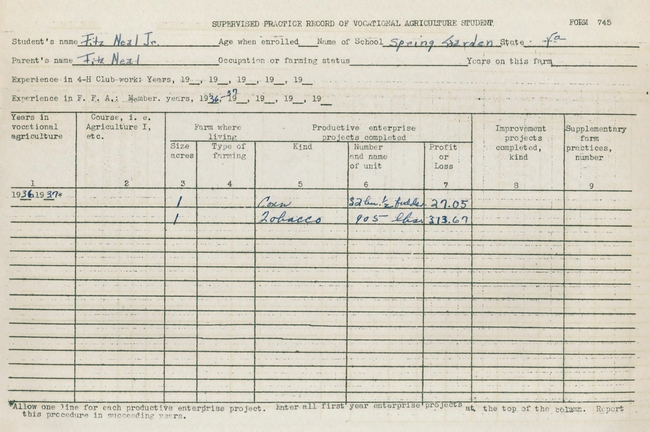 SUPERVISED PRACTICE RECORD OF VOCATIONAL AGRICULTURE STUDENT FORM 745
Student's name Fitz Neal Jr. Age when enrolled Name of School Spring Garden State Va
Parent's name Fitz Neal Occupation or farming status Years on this farm
Experience in 4-H Club-work: Years, 19 , 19 , 19 , 19 , 19
Experience in F. F. A.: Member. years, 1936-37 19 , 19 , 19 , 19
Years in vocational agriculture
Course, i. e. Agriculture I, etc.
Farm where living
Productive enterprise projects completed
Improvement projects completed, kind
Supplementary farm practices, number
Size acres
Type of farming
Kind
Number and name of unit
Profit or Loss
1 2 3 4 5 6 7 8 9
1936 1937* 1 Corn 32 bu. 1/2 fodder 27.05
1 Tobacco 905 lbs 313.67
*Allow one line for each productive enterprise project. Enter all first year enterprise projects at the top of the column. Report
this procedure in succeeding years.